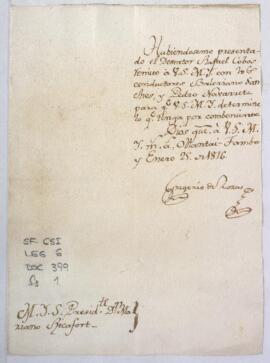 Habiendoseme presenta-
do el Desertor Rafael Cobos
remito a V.S.M.Y. con los
conductores Valeriano San
ches, y Pedro Navarrete
para qe. V.S.M.Y. determine
lo qe. tenga por combeniente.
Dios gue. à V.S.M.
Y. m. a. Ollantai-Tambo
y Enero 25. de 1816.
Gregorio de Rozas
EF CSI
LEG 6
DOC 399
fs 1
M.Y.S. Presid.te Dn. Ma
riano Ricafort